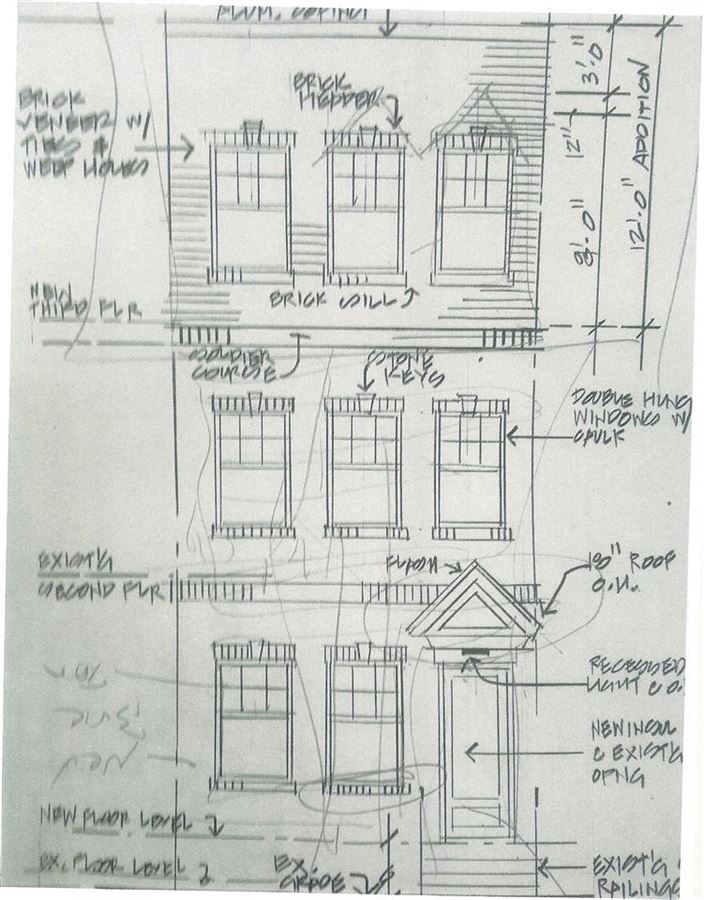 ALUM. COPING
BRICK
VENEER W/
TIES &
WEEP HOLES
BRICK
HEDDER
3'.0"
12"
8'.0"
12'.0" ADDITION
BRICK SILL
NEW
THIRD FLR
SOLDIER
COURSE
DOUBLE HUNG
WINDOWS W/
CAULK
EXIST'G
SECOND FLR
FLASH
18" ROOF
O.H.
RECESSED
LIGHT
NEW INSUL
@ EXIST'G
OPNG
NEW
NEW FLOOR LEVEL
EX. FLOOR LEVEL
EX.
GRADE
EXIST'G
RAILINGS